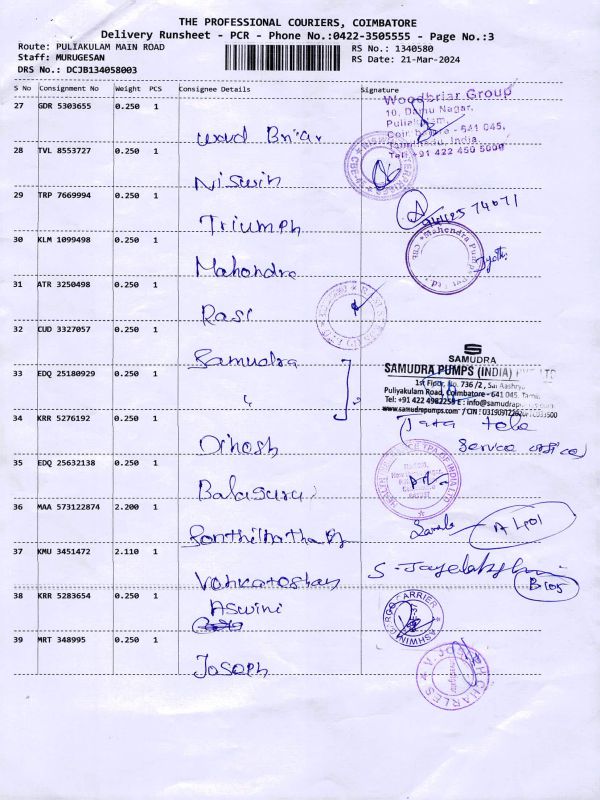 THE PROFESSIONAL COURIERS, COIMBATORE
Delivery Runsheet - PCR - Phone No.:0422-3505555 - Page No.:3
Route: PULIAKULAM MAIN ROAD RS No.: 1340580
Staff: MURUGESAN RS Date: 21-Mar-2024
DRS No.: DCJB134058003
S No Consignment No Weight PCS Consignee Details Signature
27 GDR 5303655 0.250 1
Woodbriar Group
10, Damu Nagar,
Puliakulam,
Coimbatore - 641 045,
Tamilnadu, India.
Tel: +91 422 450 5000
Wood Briar
28 TVL 8553727 0.250 1
Niswin
29 TRP 7669994 0.250 1
74071
Triumph
30 KLM 1099498 0.250 1
Mahendra Pumps
Mahondra
31 ATR 3250498 0.250 1
Rasi
32 CUD 3327057 0.250 1
Samudra
SAMUDRA
SAMUDRA PUMPS (INDIA)
1st Floor, No. 736 /2, Sai
Puliyakulam Road, Coimbatore - 641 045.
Tel: +91 422 4982255 E : info@samudrapumps.com
www.samudrapumps.com
33 EDQ 25180929 0.250 1
34 KRR 5276192 0.250 1
Tata tele
Service
Dinosh
35 EDQ 25632138 0.250 1
Balaguru
36 MAA 573122874 2.200 1
A 401
37 KMU 3451472 2.110 1
S. Jayelakshmi
B105
Vonkatoshan
38 KRR 5283654 0.250 1
Aswini
CARRIER
39 MRT 348995 0.250 1
CHARLES
Josoph